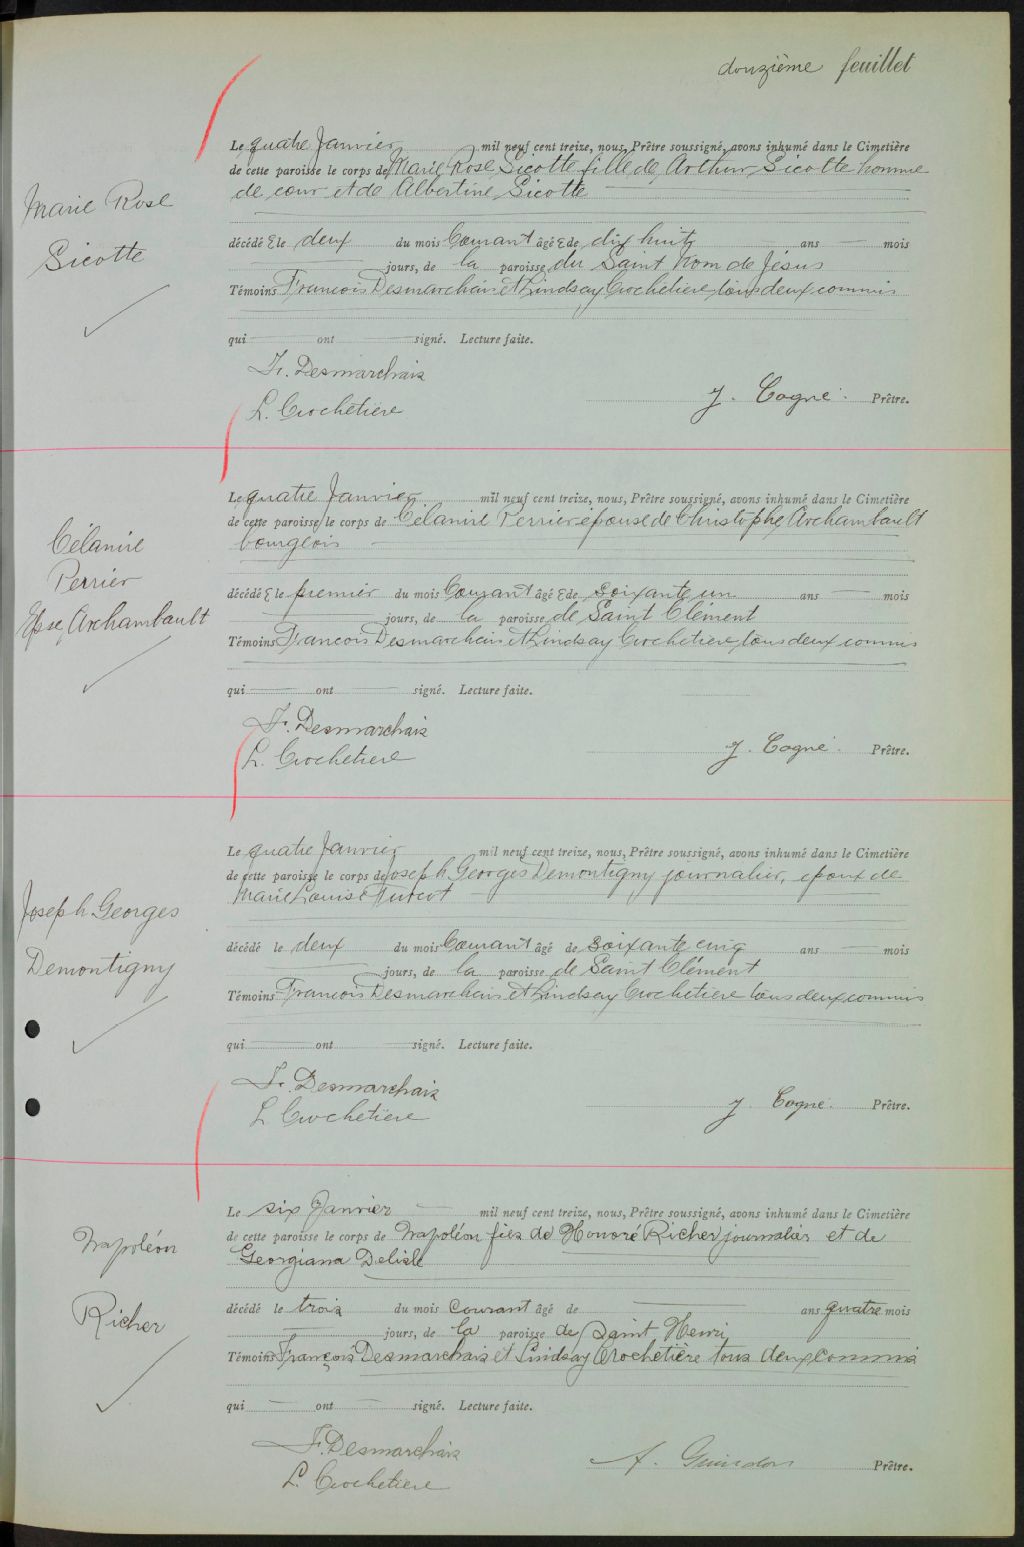 douzième feuillet
Marie Rose
Sicotte
Le quatre Janvier mil neuf cent treize, nous, Prêtre soussigné, avons inhumé dans le Cimetière
de cette paroisse le corps de Marie Rose Sicotte fille de Arthur Sicotte homme
de cour et de Albertine Sicotte
décédé E le deux du mois Courant âgé E de dix huit ans mois
jours, de la paroisse du Saint Nom de Jésus
Témoins Francois Desmarchais et Lindsay Crochetiere tous deux commis
qui ont signé. Lecture faite.
Fr. Desmarchais
L. Crochetiere
J. Cogné. Prêtre.
Célanire
Perrier
Epse Archambault
Le quatre Janvier mil neuf cent treize, nous, Prêtre soussigné, avons inhumé dans le Cimetière
de cette paroisse le corps de Célanire Perrier épouse de Christophe Archambault
bourgeois
décédé E le premier du mois Courant âgé E de soixante un ans mois
jours, de la paroisse de Saint Clément
Témoins Francois Desmarchais et Lindsay Crochetiere tous deux commis
qui ont signé. Lecture faite.
Fr. Desmarchais
L. Crochetiere
J. Cogné. Prêtre.
Joseph Georges
Demontigny
Le quatre Janvier mil neuf cent treize, nous, Prêtre soussigné, avons inhumé dans le Cimetière
de cette paroisse le corps de Joseph Georges Demontigny journalier, epoux de
Marie Louise
décédé le deux du mois Courant âgé de soixante cinq ans mois
jours, de la paroisse de Saint Clément
Témoins Francois Desmarchais et Lindsay Crochetiere tous deux commis
qui ont signé. Lecture faite.
Fr. Desmarchais
L. Crochetiere
J. Cogné. Prêtre.
Napoléon
Richer
Le six Janvier mil neuf cent treize, nous, Prêtre soussigné, avons inhumé dans le Cimetière
de cette paroisse le corps de Napoléon fils de Honoré Richer journalier et de
Georgiana Delisle
décédé le trois du mois courant âgé de ans quatre mois
jours, de la paroisse de Saint Henri
Témoins François Desmarchais et Lindsay Crochetière tous deux commis
qui ont signé. Lecture faite.
Fr. Desmarchais
L. Crochetiere
A. Guindon Prêtre.